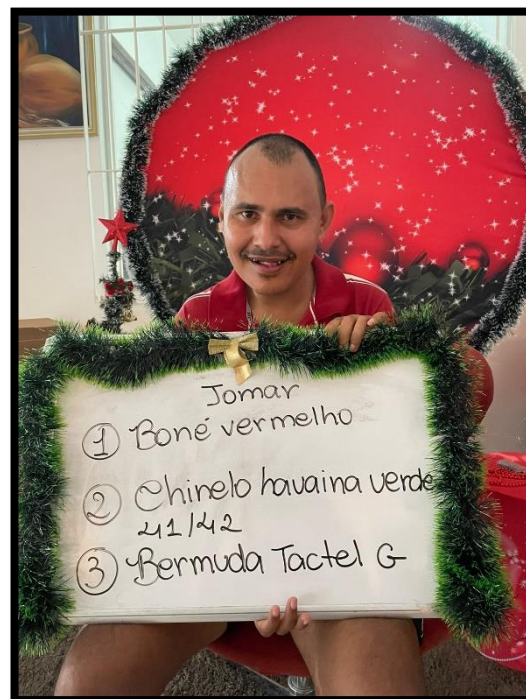 Jomar
① Boné vermelho
② Chinelo havaina verde
41/42
③ Bermuda Tactel G